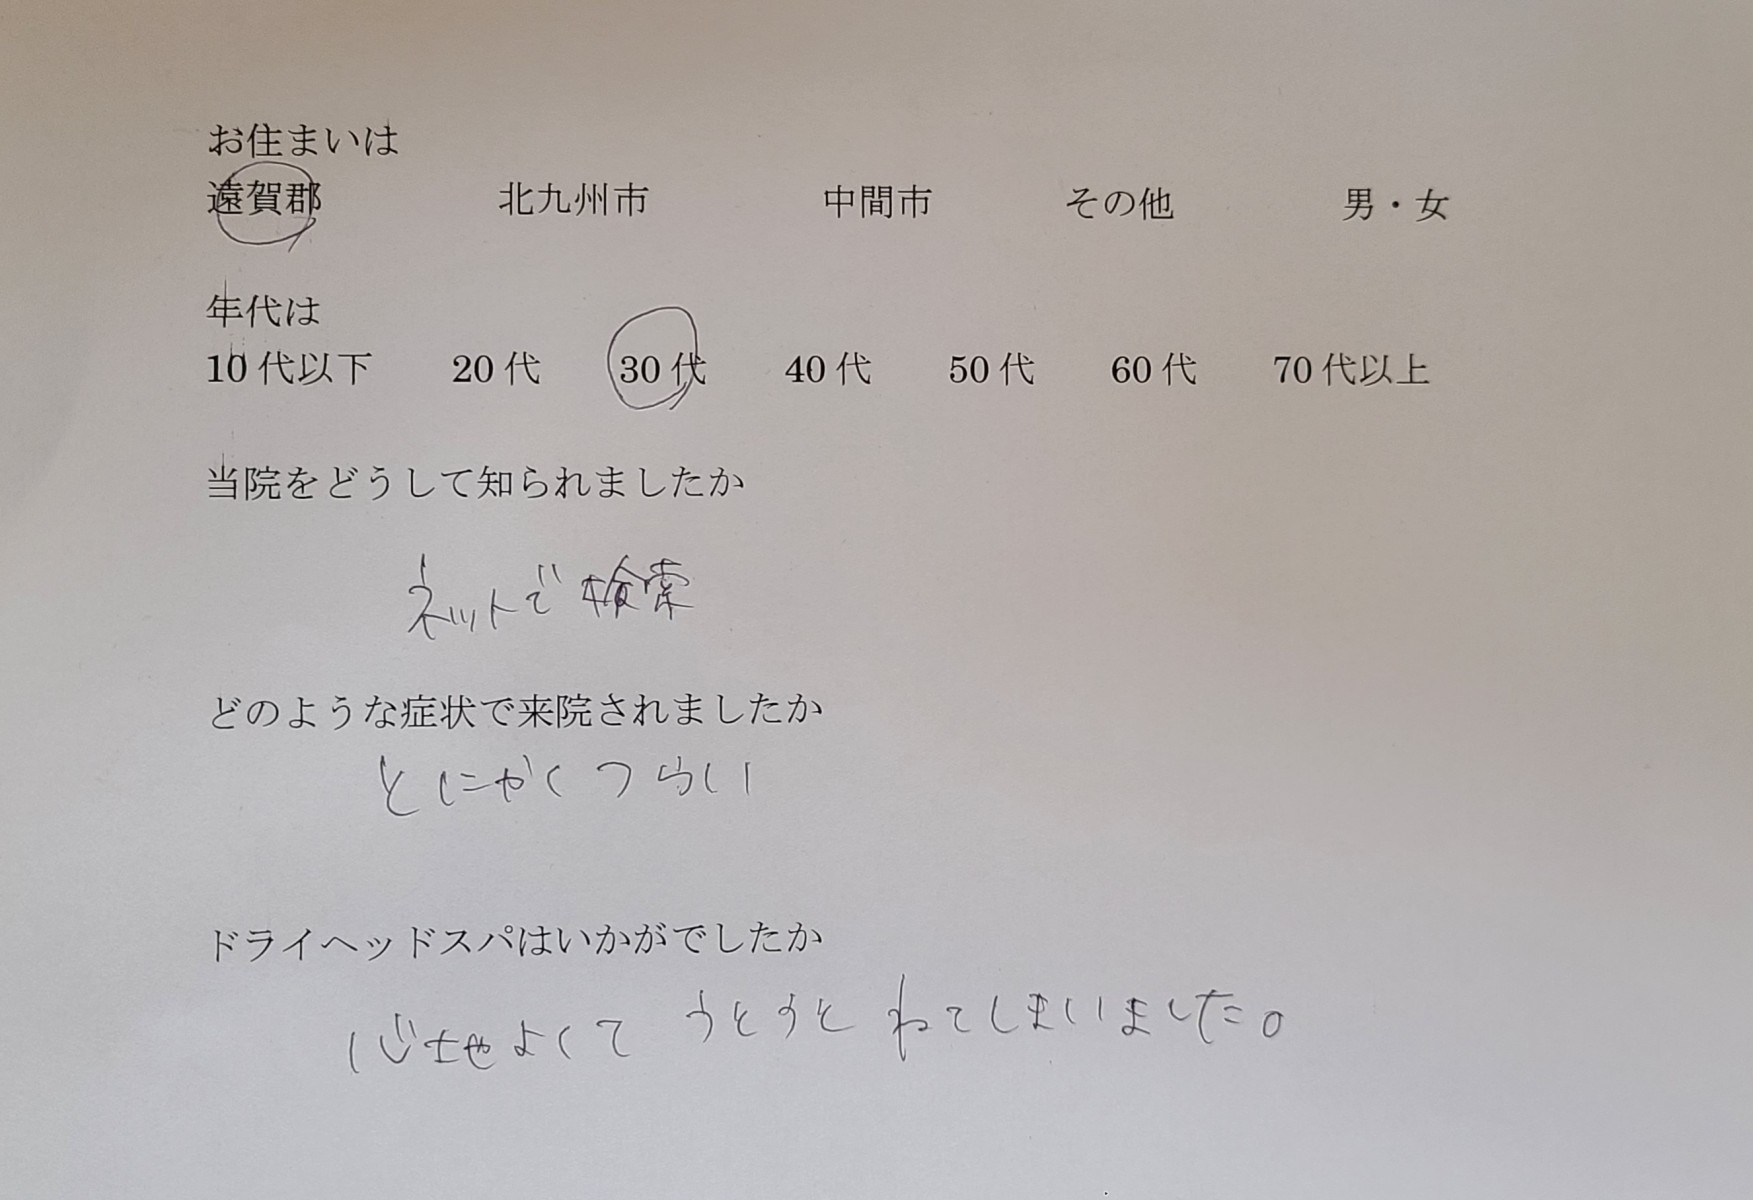 お住まいは
遠賀郡 北九州市 中間市 その他 男・女
年代は
10代以下 20代 30代 40代 50代 60代 70代以上
当院をどうして知られましたか
ネットで検索
どのような症状で来院されましたか
とにかくつらい
ドライヘッドスパはいかがでしたか
心地よくて うとうと ねてしまいました。